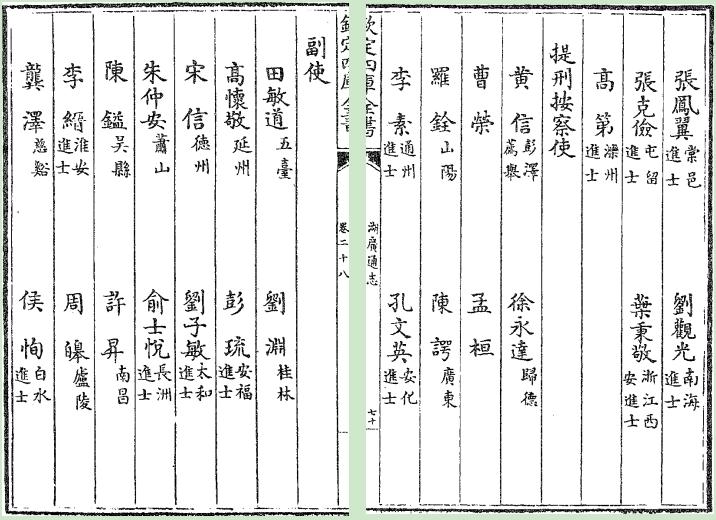 張鳳翼 棠邑進士 劉觀光 南海進士
張克儉 屯留進士 葉秉敬 浙江西安進士
高第 灤州進士
提刑按察使
黃信 彭澤薦舉 徐永達 歸德
曹榮 孟桓
羅銓 山陽 陳諤 廣東
李素 通州進士 孔文英 安化進士
欽定四庫全書 湖廣通志 卷二十八 七十
副使
田敏道 五臺 劉淵 桂林
高懷敬 延州 彭琉 安福進士
宋信 德州 劉子敏 太和進士
朱仲安 蕭山 俞士悅 長洲進士
陳鎰 吳縣 許昇 南昌
李縉 淮安進士 周皞 廬陵
龔澤 慈谿 侯恂 白水進士